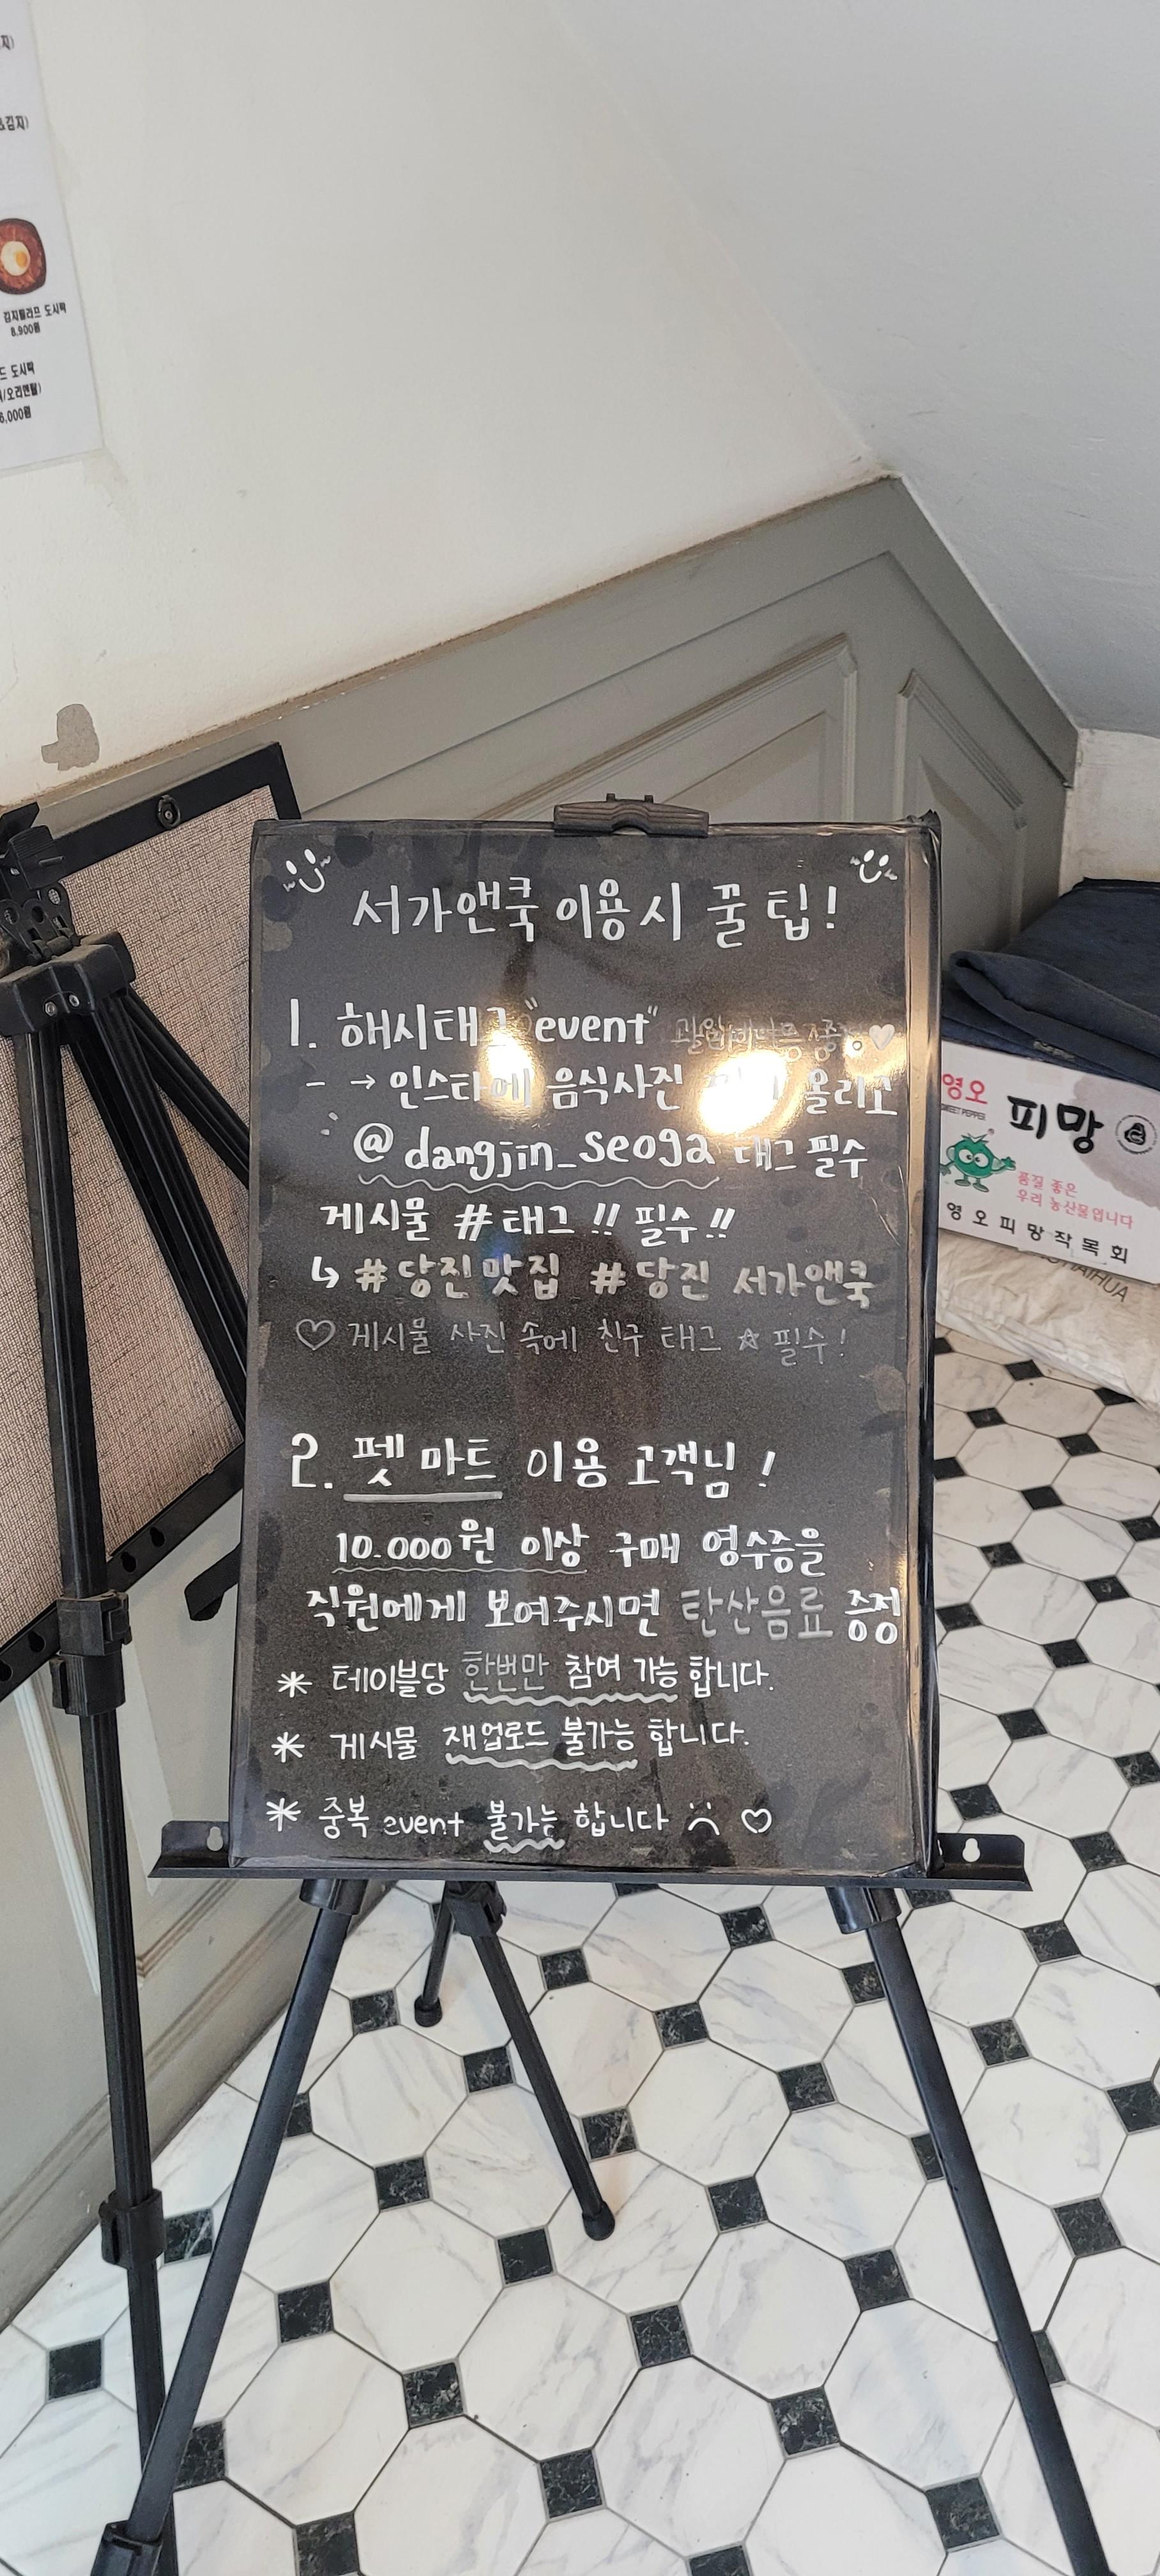 &김치)
김치필라프 도시락
8,900원
드 도시락
/오리엔탈)
6,000원
서가앤쿡 이용시 꿀 팁!
1. 해시태그 "event"
- → 인스타에 음식사진 올리고
@dangjin_seoga 태그 필수
게시물 #태그!! 필수!!
↳ #당진맛집 #당진 서가앤쿡
♡ 게시물 사진 속에 친구 태그 ☆ 필수!
2. 펫 마트 이용 고객님!
10.000원 이상 구매 영수증을
직원에게 보여주시면 탄산음료 증정
* 테이블당 한번만 참여 가능 합니다.
* 게시물 재업로드 불가능 합니다.
* 중복 event 불가능 합니다 ♡
영오
SWEET PEPPER
피망
품질 좋은
우리 농산물입니다
영오피망작목회
HAIHUA